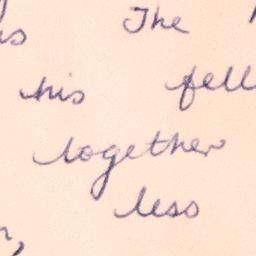 The
his fell
together
less